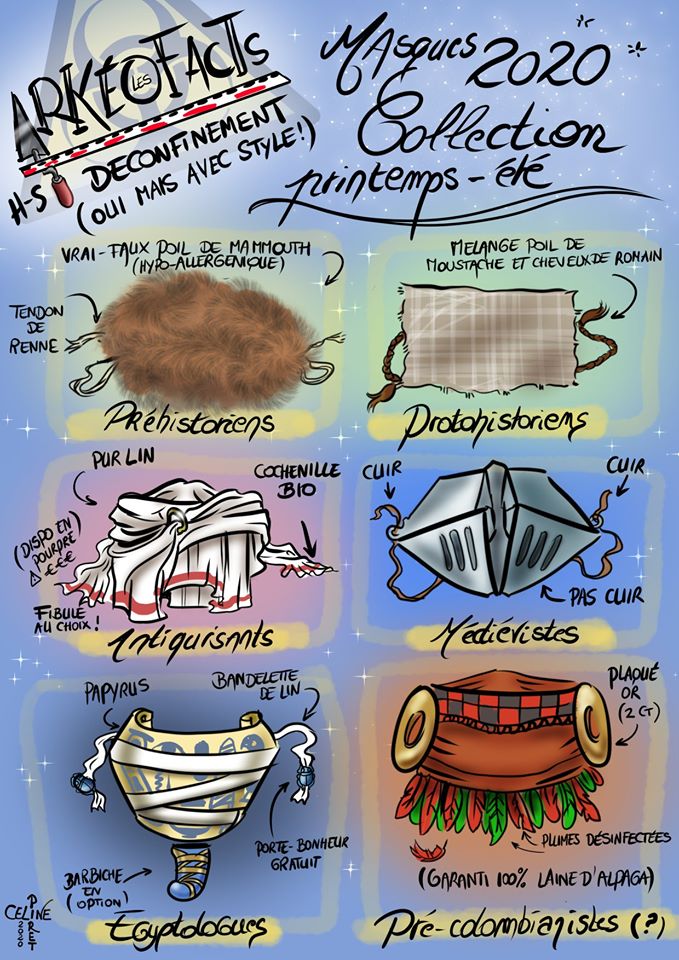 LES
ARKÉOFACTS
H-S DECONFINEMENT
(OUI MAIS AVEC STYLE!)
MAsques 2020
Collection
printemps-été
VRAI-FAUX POIL DE MAMMOUTH
(HYPO-ALLERGENIQUE)
TENDON
DE
RENNE
Préhistoriens
MELANGE POIL DE
MOUSTACHE ET CHEVEUX DE ROMAIN
Protohistoriens
PUR LIN
COCHENILLE
BIO
(DISPO EN
POURPRE)
⚠ €€€
FIBULE
AU CHOIX!
Antiquisants
CUIR
CUIR
PAS CUIR
Médiévistes
PAPYRUS
BANDELETTE
DE LIN
PORTE-BONHEUR
GRATUIT
BARBICHE
EN
(OPTION)
Egyptologues
PLAQUÉ
OR
(2 CT)
PLUMES DÉSINFECTÉES
(GARANTI 100% LAINE D'ALPAGA)
Pré-colombianistes (?)
CELINE
PIRET
2020